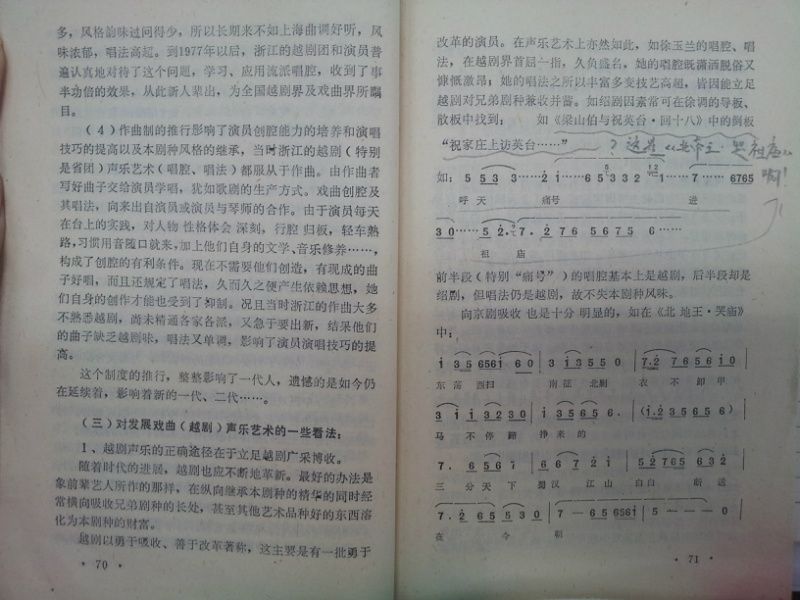 多，风格韵味过问得少，所以长期来不如上海曲调好听，风
味浓郁，唱法高超。到1977年以后，浙江的越剧团和演员普
遍认真地对待了这个问题，学习、应用流派唱腔，收到了事
半功倍的效果，从此新人辈出，为全国越剧界及戏曲界所瞩
目。
（4）作曲制的推行影响了演员创腔能力的培养和演唱
技巧的提高以及本剧种风格的继承，当时浙江的越剧（特别
是省团）声乐艺术（唱腔、唱法）都服从于作曲。由作曲者
写好曲子交给演员学唱，犹如歌剧的生产方式。戏曲创腔及
其唱法，向来出自演员或演员与琴师的合作。由于演员每天
在台上的实践，对人物 性格体会 深刻，行腔 归板，轻车熟
路，习惯用音随口就来，加上他们自身的文学、音乐修养……，
构成了创腔的有利条件。现在不需要他们创造，有现成的曲
子好唱，而且还规定了唱法，久而久之便产生依赖思想，她
们自身的创作才能也受到了抑制。况且当时浙江的作曲大多
不熟悉越剧，尚未精通各家各派，又急于要出新，结果他们
的曲子缺乏越剧味，唱法又单调，影响了演员演唱技巧的提
高。
这个制度的推行，整整影响了一代人，遗憾的是如今仍
在延续着，影响着新的一代、二代……。
（三）对发展戏曲（越剧）声乐艺术的一些看法：
1、越剧声乐的正确途径在于立足越剧广采博收。
随着时代的进展，越剧也应不断地革新。最好的办法是
象前辈艺人所作的那样，在纵向继承本剧种的精华的同时经
常横向吸收兄弟剧种的长处，甚至其他艺术品种好的东西溶
化为本剧种的财富。
越剧以勇于吸收、善于改革著称，这主要是有一批勇于
· 70 ·
改革的演员。在声乐艺术上亦然如此，如徐玉兰的唱腔、唱
法，在越剧界首屈一指，久负盛名，她的唱腔既潇洒脱俗又
慷慨激昂；她的唱法之所以丰富多变技艺高超，皆因能立足
越剧对兄弟剧种兼收并蓄。如绍剧因素常可在徐调的导板、
散板中找到： 如《梁山伯与祝英台·回十八》中的倒板
“祝家庄上访英台……”
？这是《北帝王·哭祖庙》
啊！
如：5 53 3……2 1……6 5 3 32 1……7……6765
呼天 痛号 进
30……52·7·2 765 675 6……
祖 庙
前半段（特别“痛号”）的唱腔基本上是越剧，后半段却是
绍剧，但唱法仍是越剧，故不失本剧种风味。
向京剧吸收 也是十分 明显的，如在《北 地王·哭庙》
中：
1 35 6561 60 | 3 13550 | 7.2 765610 |
东荡 西扫 南征 北剿 衣 不 卸 甲
3 1 1 3230 | 1355656. | (1.235656) |
马 不 停 蹄 挣 来 的
7. 6567 | 66 721 | 52765 632 |
三 分 天 下 蜀汉 江山 白白 断 送
7.265 530 | 7 — 65 6561 | 5 — — — 0 |
在 今 朝
· 71 ·